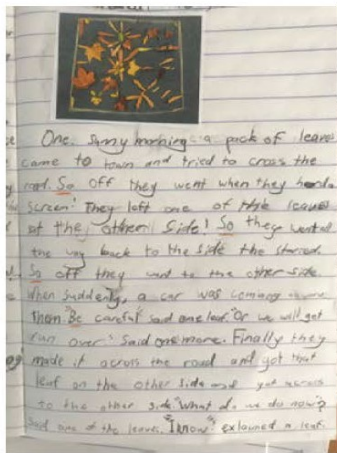 One. Sunny morning a pack of leaves
came to town and tried to cross the
road. So off they went when they heard a
screen! They left one of the leaves
at the other side! So they went all
the way back to the side the starred.
So off they went to the other side
When suddenly, a car was coming
them. "Be careful" said one leaf. "Or we will get
ran over" said one more. Finally they
made it across the road and got that
leaf on the other side and got across
to the other side. "What do we do now"?
Said one of the leaves. "I know" exlamed a leaf.